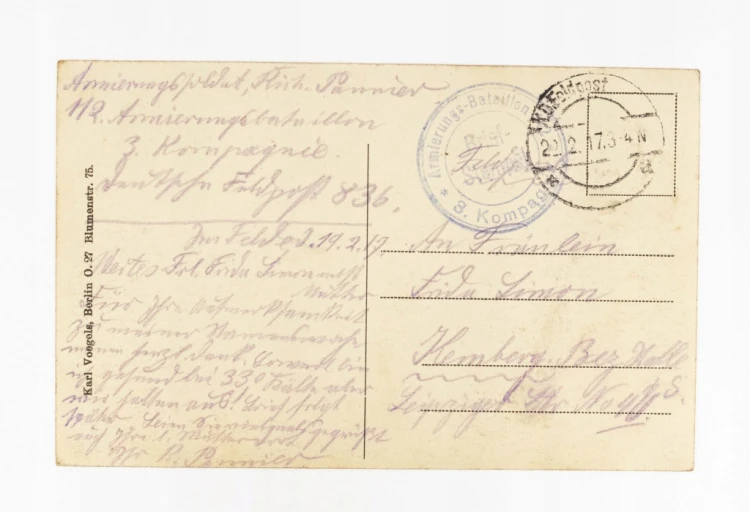 Armierungssoldat, Rich. Pannier
112. Armierungsbataillon
3. Kompagnie.
Deutsche Feldpost 836.
Im Felde d. 19.2.17.
Wertes Frl. Frida Simon nebst
Mutter
Für Ihre Aufmerksamkeit
zu meiner
meinen herzl. Dank.
gesund bei 33° Kälte aber
wir halten aus! Brief folgt
später. Seien Sie vielmals gegrüßt
auch Ihre l. Mutter
Ihr R. Pannier.
Karl Voegels, Berlin O. 27 Blumenstr. 75.
Armierungs-Bataillon
Brief-
Stempel
* 3. Kompag
Feldp
K.D. Feldpost
2.17. 3-4 N
a
An Fräulein
Frida Simon
Bez Halle
Leipziger Str No